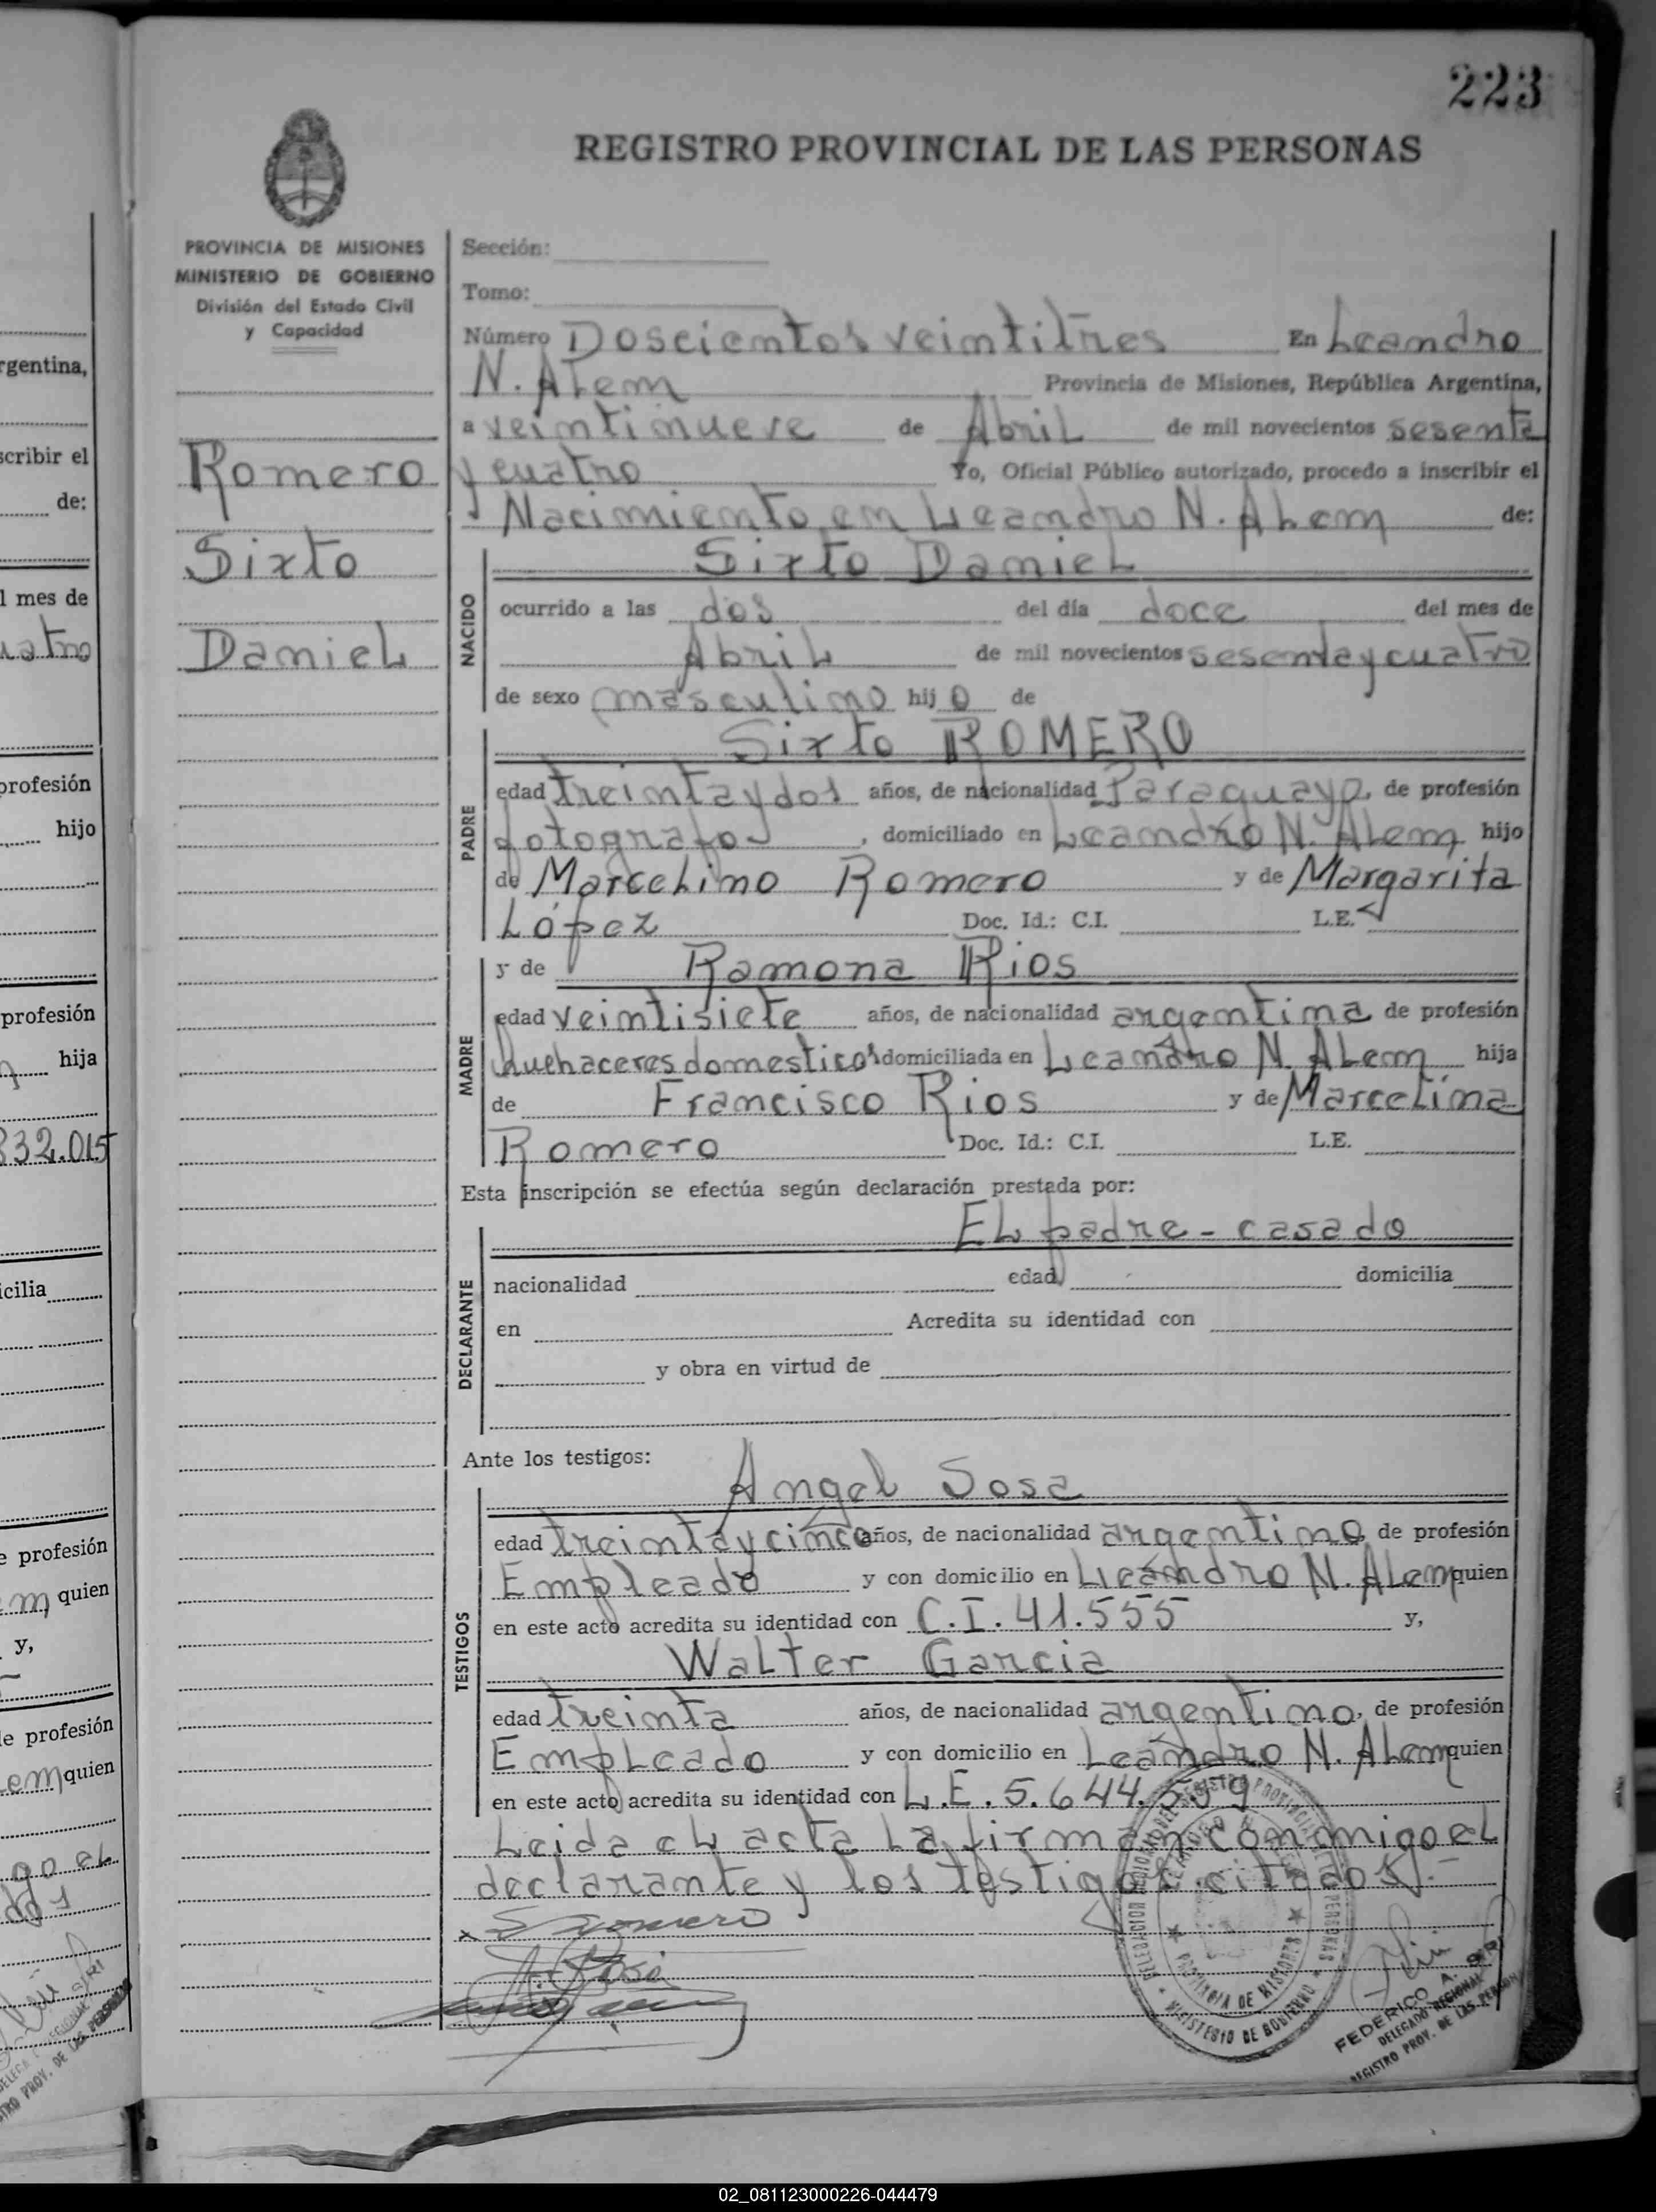 223
REGISTRO PROVINCIAL DE LAS PERSONAS
PROVINCIA DE MISIONES
MINISTERIO DE GOBIERNO
División del Estado Civil
y Capacidad
Romero
Sixto
Daniel
Sección:
Tomo:
Número Doscientos veintitres En Leandro
N. Alem Provincia de Misiones, República Argentina,
a veintinueve de Abril de mil novecientos sesenta
y cuatro Yo, Oficial Público autorizado, procedo a inscribir el
Nacimiento en Leandro N. Alem de:
NACIDO
Sixto Daniel
ocurrido a las dos del día doce del mes de
Abril de mil novecientos sesenta y cuatro
de sexo masculino hijo de
PADRE
Sixto ROMERO
edad treinta y dos años, de nacionalidad Paraguayo, de profesión
fotografo, domiciliado en Leandro N. Alem hijo
de Marcelino Romero y de Margarita
López Doc. Id.: C.I. L.E.
MADRE
y de Ramona Rios
edad veintisiete años, de nacionalidad argentina de profesión
quehaceres domesticos domiciliada en Leandro N. Alem hija
de Francisco Rios y de Marcelina
Romero Doc. Id.: C.I. L.E.
Esta inscripción se efectúa según declaración prestada por:
DECLARANTE
El padre - casado
nacionalidad edad domicilia
en Acredita su identidad con
y obra en virtud de
Ante los testigos:
TESTIGOS
Angel Sosa
edad treinta y cinco años, de nacionalidad argentino, de profesión
Empleado y con domicilio en Leandro N. Alem quien
en este acto acredita su identidad con C.I. 41.555 y,
Walter Garcia
edad treinta años, de nacionalidad argentino, de profesión
Empleado y con domicilio en Leandro N. Alem quien
en este acto acredita su identidad con L.E. 5.644.559
Leida el acta la firman conmigo el
declarante y los testigos citados.-
S Romero
A. Sosa
PROVINCIA DE MISIONES
MINISTERIO DE GOBIERNO
FEDERICO A.
DELEGADO REGIONAL
REGISTRO PROV. DE LAS PERSON
rgentina,
scribir el
de:
l mes de
uatro
profesión
hijo
profesión
hija
832.015
icilia
e profesión
em quien
y,
de profesión
lem quien
go el
02_081123000226-044479